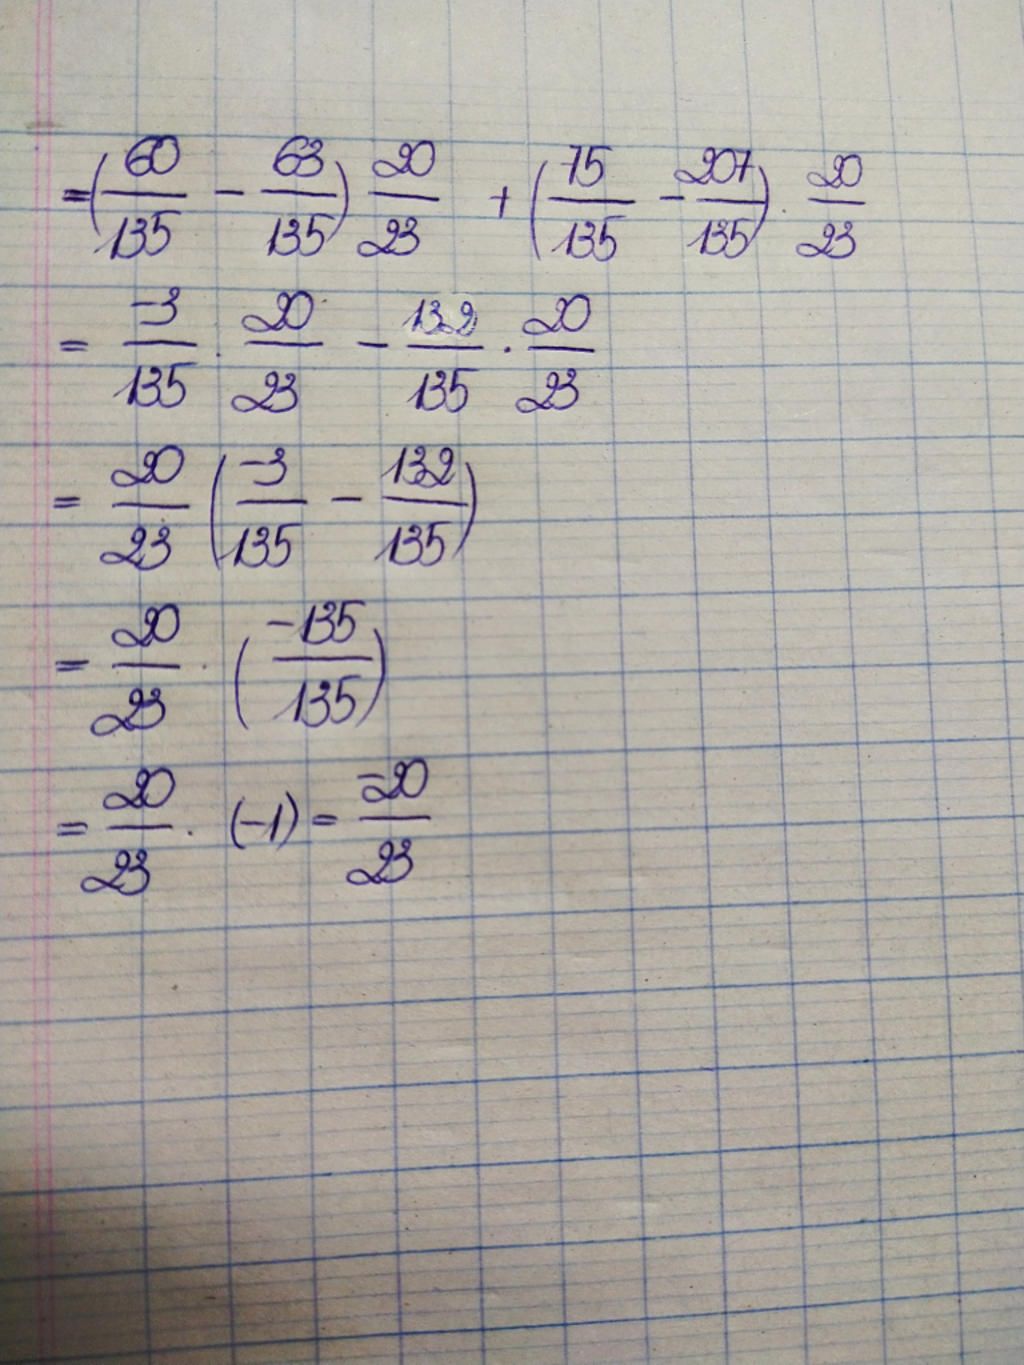 =(60/135 - 63/135) 20/23 + (75/135 - 207/135) . 20/23
= -3/135 . 20/23 - 132/135 . 20/23
= 20/23 (-3/135 - 132/135)
= 20/23 . (-135/135)
= 20/23 . (-1) = -20/23